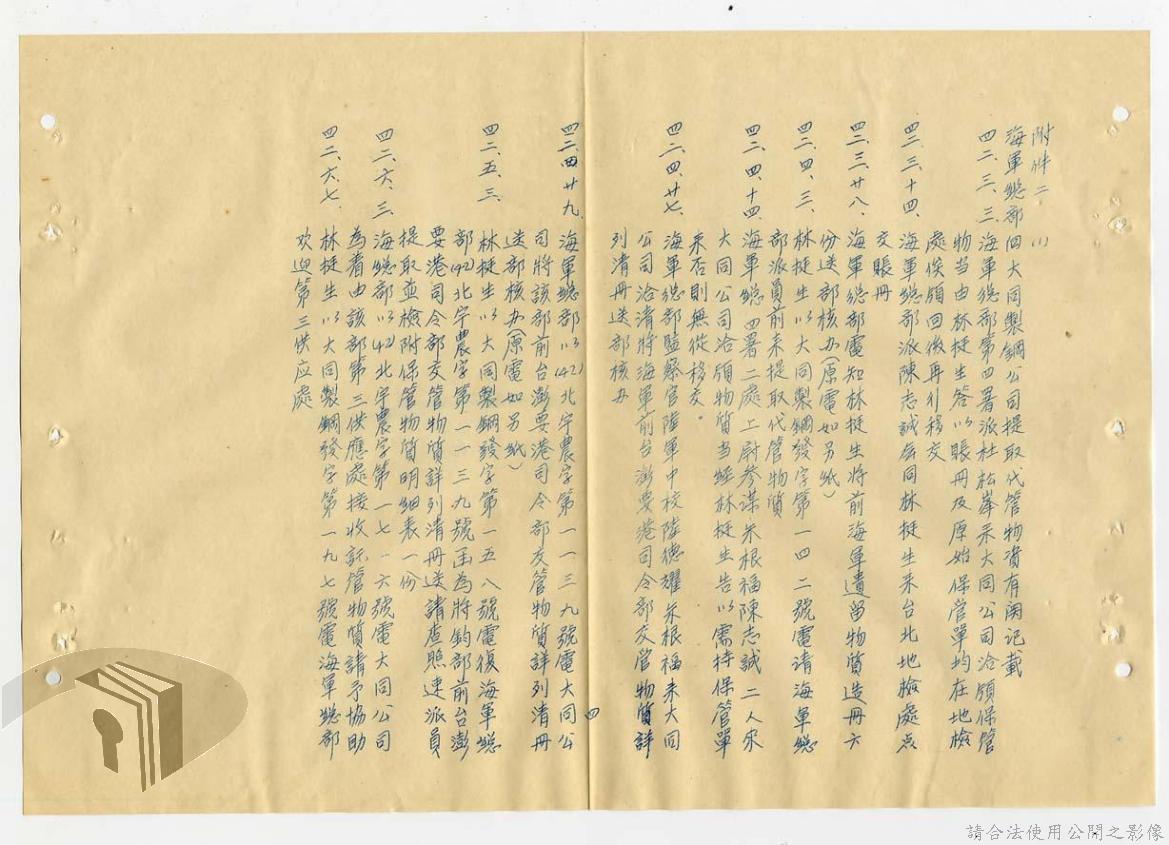 附件二 (1)
海軍總部向大同製鋼公司提取代管物資有関记載
四二、三、三、海軍總部第四署派杜松峯来大同公司洽領保管
物当由林挺生答以賬冊及原始保管單均在地檢
處俟領回後再行移交
四二、三、十四、海軍總部派陳志誠偕同林挺生来台北地檢處点
交賬冊
四二、三、廿八、海軍總部電知林挺生将前海軍遺留物質造冊六
份送部核办(原電如另紙)
四二、四、三、林挺生以大同製鋼發字第一四二號電请海軍總
部派員前来提取代管物質
四二、四、十四、海軍總四署二處上尉参謀朱根福陳志誠二人来
大同公司洽領物质当經林挺生告以需持保管單
来否則無從移交。
四二、四、廿七、海軍總部監察官陸軍中校陸德耀朱根福来大同
公司洽清將海軍前台澎要港司令部交管物質詳
列清冊送部核办
四二、四、廿九、海軍總部以(42)北宇農字第一一三九號電大同公
司將該部前台澎要港司令部交管物質詳列清冊
送部核办(原電如另紙)
四二、五、三、林挺生以大同製鋼發字第一五八號電復海軍總
部(42)北宇農字第一一三九號函為將鈞部前台澎
要港司令部交管物質詳列清冊送請查照速派員
提取並檢附保管物質明細表一份
四二、六、三、海總部以(42)北宇農字第一七一六號電大同公司
為着由該部第三供應處接收託管物質請予協助
四二、六、七、林挺生以大同製鋼發字第一九七號電海軍總部
欢迎第三供应處
四
請合法使用公開之影像